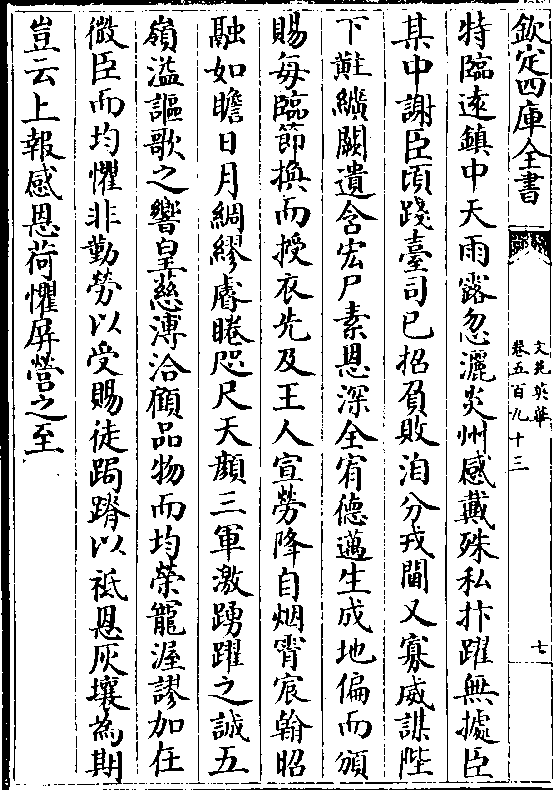 欽定四庫全書
文苑英華
卷五百九十三
七
特臨遠鎮中天雨露忽灑炎州感戴殊私抃躍無據臣
某中謝臣頃踐臺司已招負敗洎分戎閫又寡威謀陛
下黈纊闕遺含宏尸素恩深全宥德邁生成地偏而頒
賜每臨節換而授衣先及王人宣勞降自烟霄宸翰昭
融如瞻日月綢繆睿睠咫尺天顔三軍激踴躍之誠五
嶺溢謳歌之響皇慈溥洽顧品物而均榮寵渥謬加在
微臣而均懼非勤勞以受賜徒跼蹐以祗恩灰壤為期
豈云上報感恩荷懼屏營之至